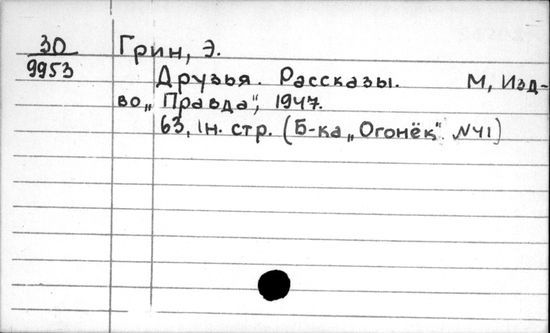 30 Грин, Э.
9953 Друзья. Рассказы. М, Изд-
во „Правда“, 1947.
63, 1н. стр. (Б-ка „Огонёк“ №41)